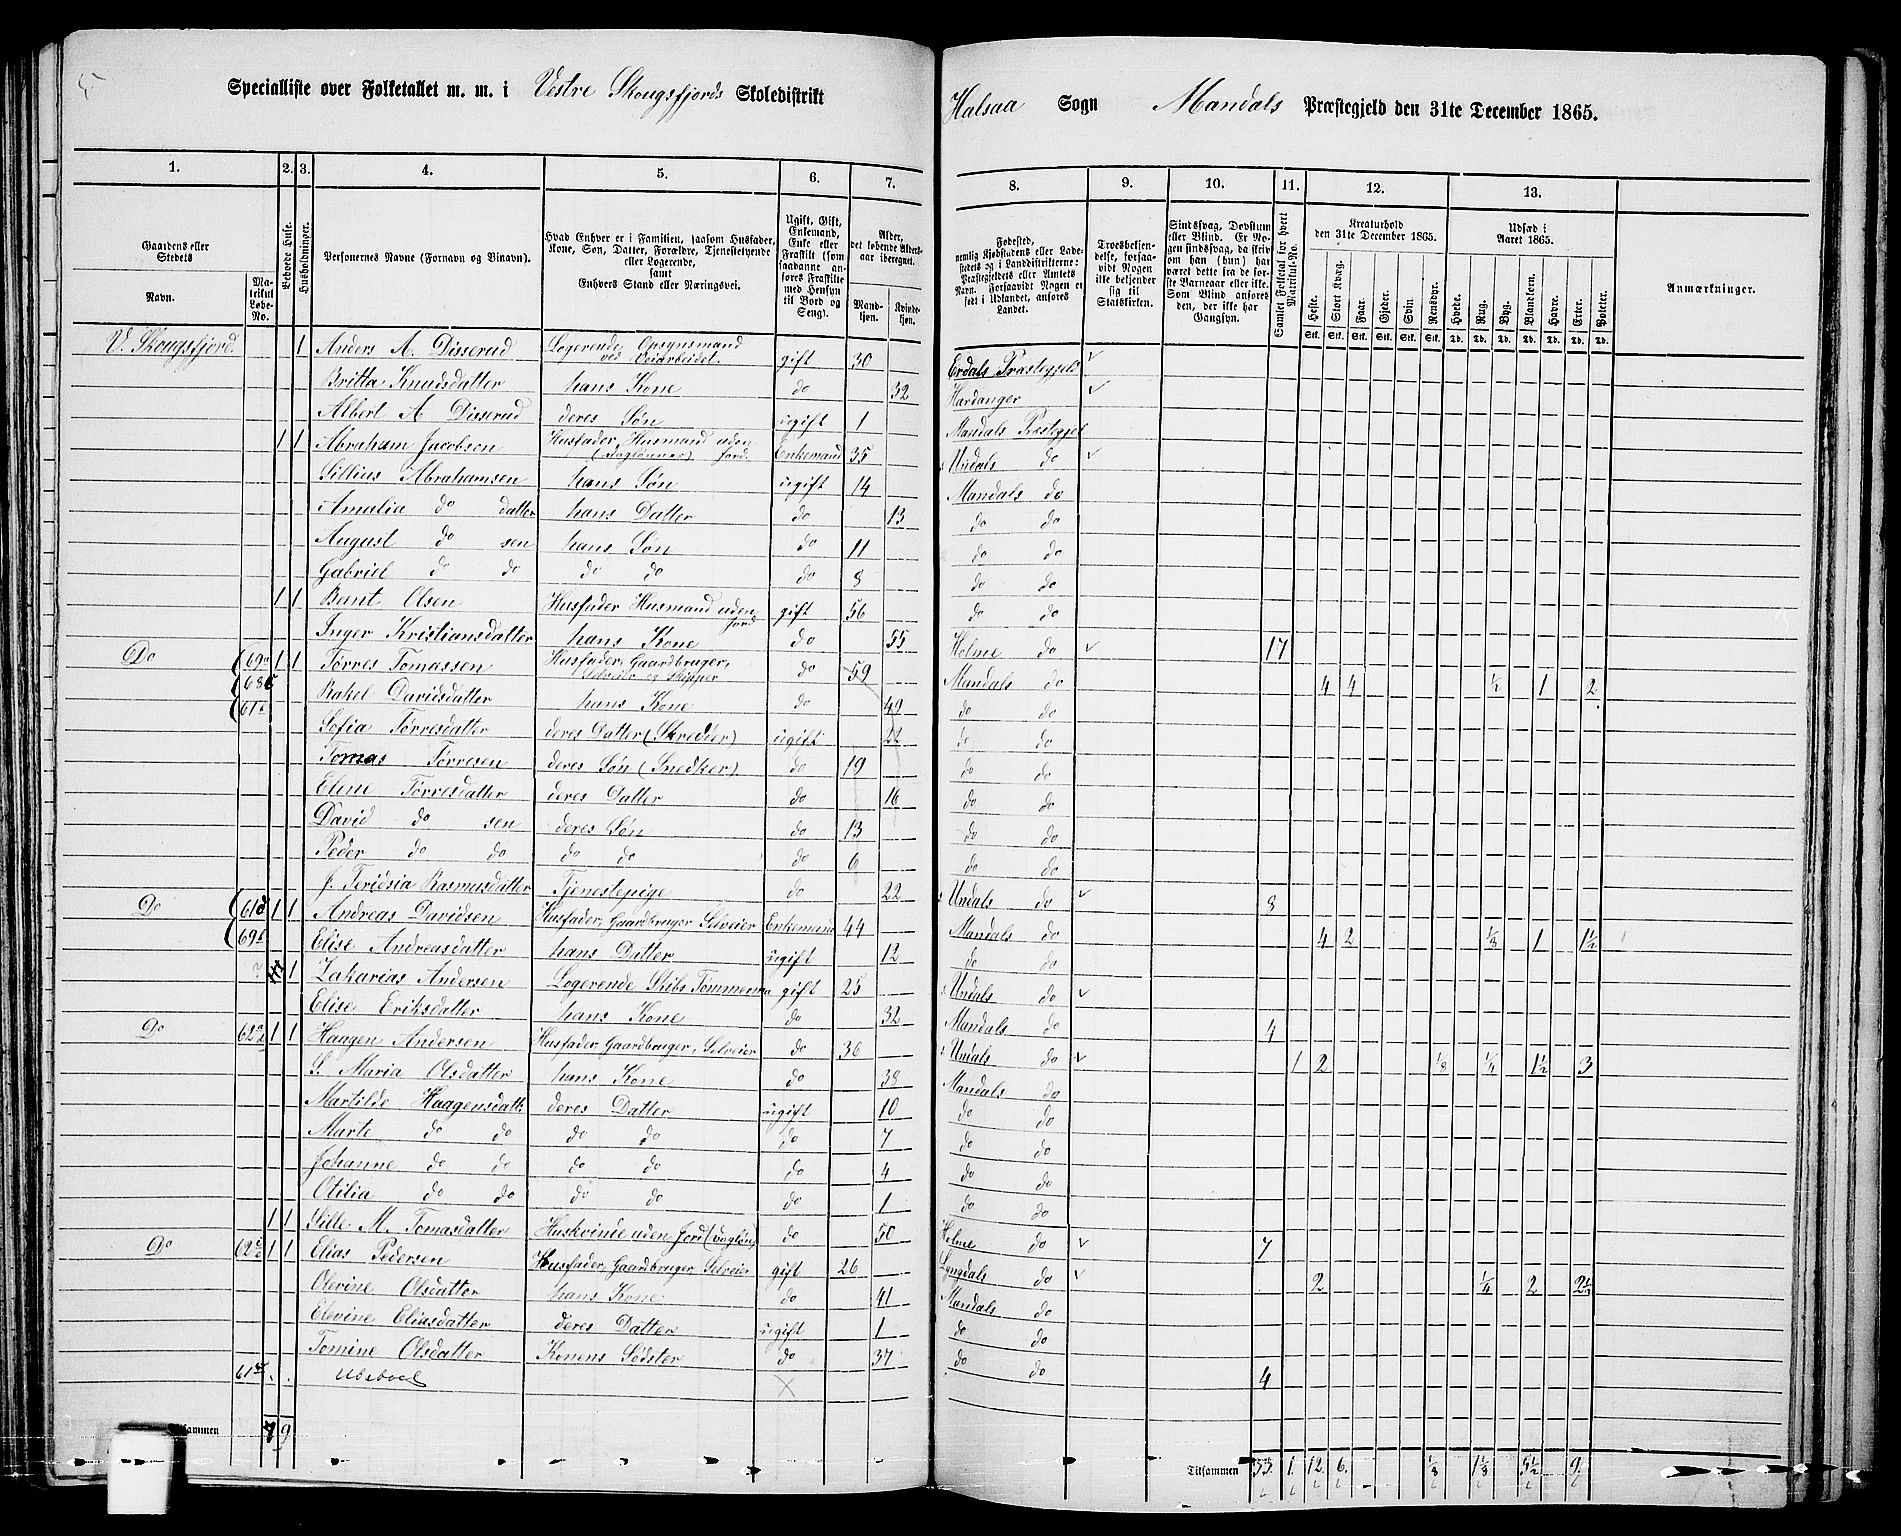 5
Specialliste over Folketallet m. m. i Vestre Skougsfjords Skoledistrikt Halsaa Sogn Mandals Præstegjeld den 31te December 1865.
1. 2. 3. 4. 5. 6. 7. 8. 9. 10. 11. 12. 13.
Gaardens eller Stedets
Navn.
Matrikul Løbe-No.
Beboede Huse.
Husholdninger.
Personernes Navne (Fornavn og Tilnavn).
Hvad Enhver er i Familien, saasom Husfader, Kone, Søn, Datter, Forældre, Tjenestetyende eller Logerende, samt Enhvers Stand eller Næringsvei.
Ugift, Gift, Enkemand, Enke eller Fraskilt (som saadanne anføres Fraskilte med Hensyn til Bord og Seng).
Alder, det løbende Alders-aar iberegnet.
Mandkjøn. Kvindekjøn.
Fødested, nemlig Kjøbstadens eller Ladestedets og i Landdistrikterne: Præstegjeldets eller Amtets Navn. Forsaavidt Nogen er født i Udlandet, anføres Landet.
Troesbekjendelse, forsaavidt Nogen ikke bekjender sig til Statskirken.
Sindssvag, Døvstum eller Blind. Er Nogen sindssvag, da skriv om han (hun) har været dette fra de første Barneaar eller ikke. Som Blind anføres den, der ikke har Gangsyn.
Samlet Folketal for hvert Matrikul-No.
Kreaturhold den 31te December 1865.
Heste. Stort Kvæg. Faar. Gjeder. Svin. Rensdyr.
Udsæd i Aaret 1865.
Hvede. Rug. Byg. Blandkorn. Havre. Erter. Poteter.
Anmærkninger.
V. Skougsfjord. 1 Anders A. Disserud Logerende, Opsynsmand ved Veiarbeidet. gift 30 Præstegjeld
Britta Knudsdatter hans Kone do 32 Hardanger
Albert A Disserud deres Søn ugift 1 Mandals Præstegjel
1 1 Abraham Jacobsen Husfader, Husmand uden Jord. Enkemand 35 Undals do
Abrahamsen hans Søn ugift 14 Mandals do
Amalia do datter hans Datter do 13 do do
August do sen hans Søn do 11 do do
Gabriel do do do do do 8 do do
1 1 Bent Olsen Husfader Husmand uden Jord gift 56 do do
Inger Kristiansdatter hans Kone do 55 Holme do 17
Do 69 1 1 Tørres Tomassen Husfader, Gaardbruger, Selveier og Skipper do 59 Mandals do 4 4 1/2 1 2
68 Rakel Davidsdatter hans Kone do 49 do do
61 Sofia Tørresdatter deres Datter (Skredder) ugift 22 do do
Tomas Tørresen deres Søn (Snedker) do 19 do do
Elene Tørresdatter deres Datter do 16 do do
David do sen deres Søn do 13 do do
Peder do do do do do 6 do do
J. Rasmusdatter Tjenestepige do 22 Undals do 8
Do 61 1 1 Andreas Davidsen Husfader, Gaardbruger Selveier Enkemand 44 Mandals do 4 2 1/8 1 1 1/2
69 Elise Andreasdatter hans Datter ugift 12 do do
1 Zakarias Andersen Logerende Skibs Tømmerma gift 25 Undals do
Elise Eriksdatter hans Kone do 32 Mandals do 4
Do 62 1 1 Haagen Andersen Husfader, Gaardbruger, Selveier do 36 Undals do 1 2 1/8 1/4 1 1/2 3
S. Maria Olsdatter hans Kone do 38 Mandals do
Martilde Haagensdatt. deres Datter ugift 10 do do
Marte do do do do do 7 do do
Johanne do do do do do 4 do do
Otilia do do do do do 1 do do
1 1 M. Tomasdatter Huskvinde uden Jord do 50 Holme do 7
Do 62 1 1 Elias Pedersen Husfader, Gaardbruger Selveier gift 26 Lyngdals do 2 1/4 2 2 1/2
Olevine Olsdatter hans Kone do 41 Mandals do
Elevine Eliasdatter deres Datter ugift 1 do do
Tomine Olsdatter Konens Södster do 37 do do 4
61 Ubeboel
Tilsammen 7 9 Tilsammen 1. 12. 6. 1/8 5 1/2 9.